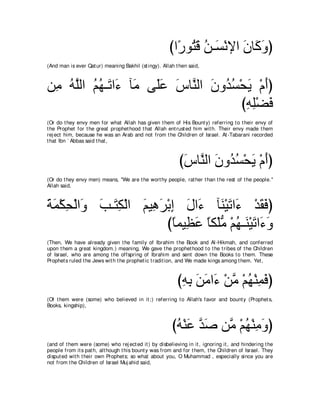 (وَكَانَ الإِنْسَـنُ قَتُورًا)
(And man is ever Qatur) meaning Bakhil (stingy). Allah then said,
(أَمْ يَحْسُدُونَ النَّاسَ عَلَى مَآ ءَاتَـهُمُ اللَّهُ مِن
فَضْلِهِ)
(Or do they envy men for what Allah has given them of His Bounty) referring to their envy of
the Prophet for the great prophethood that Allah entrusted him with. Their envy made them
reject him, because he was an Arab and not from the Children of Israel. At-Tabarani recorded
that Ibn `Abbas said that,
(أَمْ يَحْسُدُونَ النَّاسَ)
(Or do they envy men) means, "We are the worthy people, rather than the rest of the people."
Allah said,
(فَقَدْ ءَاتَيْنَآ ءَالَ إِبْرَهِيمَ الْكِتَـبَ وَالْحِكْمَةَ
وَءَاتَيْنَـهُمْ مُّلْكاً عَظِيماً)
(Then, We have already given the family of Ibrahim the Book and Al-Hikmah, and conferred
upon them a great kingdom.) meaning, We gave the prophethood to the tribes of the Children
of Israel, who are among the offspring of Ibrahim and sent down the Books to them. These
Prophets ruled the Jews with the prophetic tradition, and We made kings among them. Yet,
(فَمِنْهُمْ مَّنْ ءَامَنَ بِهِ)
(Of them were (some) who believed in it;) referring to Allah's favor and bounty (Prophets,
Books, kingship),
(وَمِنْهُمْ مَّن صَدَّ عَنْهُ)
(and of them were (some) who rejected it) by disbelieving in it, ignoring it, and hindering the
people from its path, although this bounty was from and for them, the Children of Israel. They
disputed with their own Prophets; so what about you, O Muhammad , especially since you are
not from the Children of Israel Mujahid said,